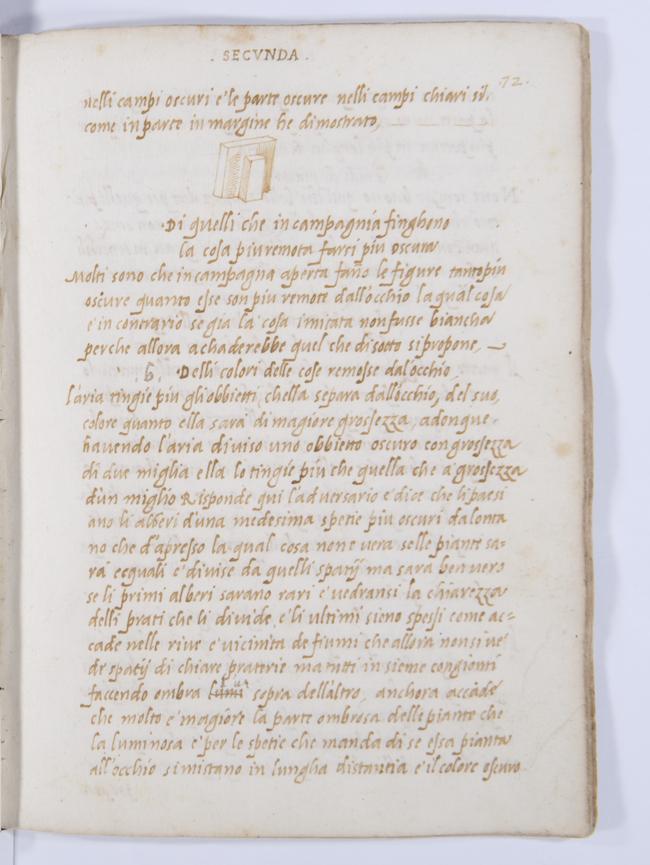 . SECVNDA .
72.
nelli campi oscuri e' le parte oscure nelli campi chiari si
come in parte in margine he dimostrato,
Di quelli che in campagnia finghono
la cosa piu remota farsi piu oscura
Molti sono che in campagna aperta fano le figure tanto piu
oscure quanto esse son piu remote dall'occhio la qual cosa
e' in contrario se gia la cosa imitata non fusse biancha
perche allora achaderebbe quel che di sotto si propone,
6. Delli colori delle cose remosse dal occhio
l'aria tingie piu gli obbietti, chella separa dall'occhio, del suo
colore quanto ella sara di magiore grossezza, adonque
havendo l'aria diviso uno obbietto oscuro con grossezza
di due miglia ella lo tingie piu che quella che a grossezza
d'un miglio Risponde qui l'adversario e dice che li paesi
ano li alberi d'una medesima spetie piu oscuri da lonta
no che d'apresso la qual cosa non e vera se lle piante sa=
rā ecquali e' divise da quelli spatij ma sara ben vero
se li primi alberi sarano rari e' vedransi la chiarezza
delli prati che li divide, e' li ultimi sieno spessi come ac=
cade nelle rive e' vicinita de fiumi che allora non si ve
de spatij di chiare praterie ma tutti in sieme congionti
facendo ombra l'uno sopra dell'altro, anchora accade
che molto e' magiore la parte ombrosa delle piante che
la luminosa e' per le spetie che manda di se essa pianta
all'occhio si mistano in lungha distantia e' il colore oscuro